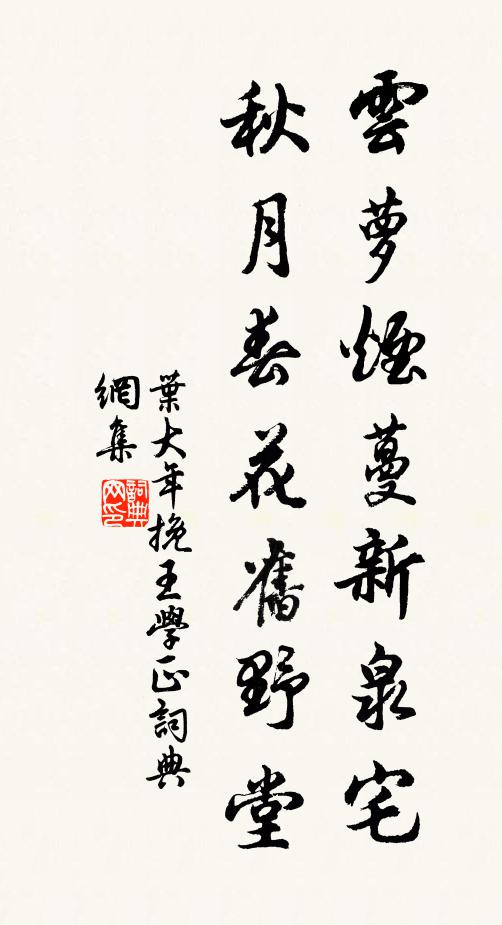 雲夢煙蔓新泉宅
秋月春花舊野堂
葉大年挽王學正詞典
網集
詞典網印